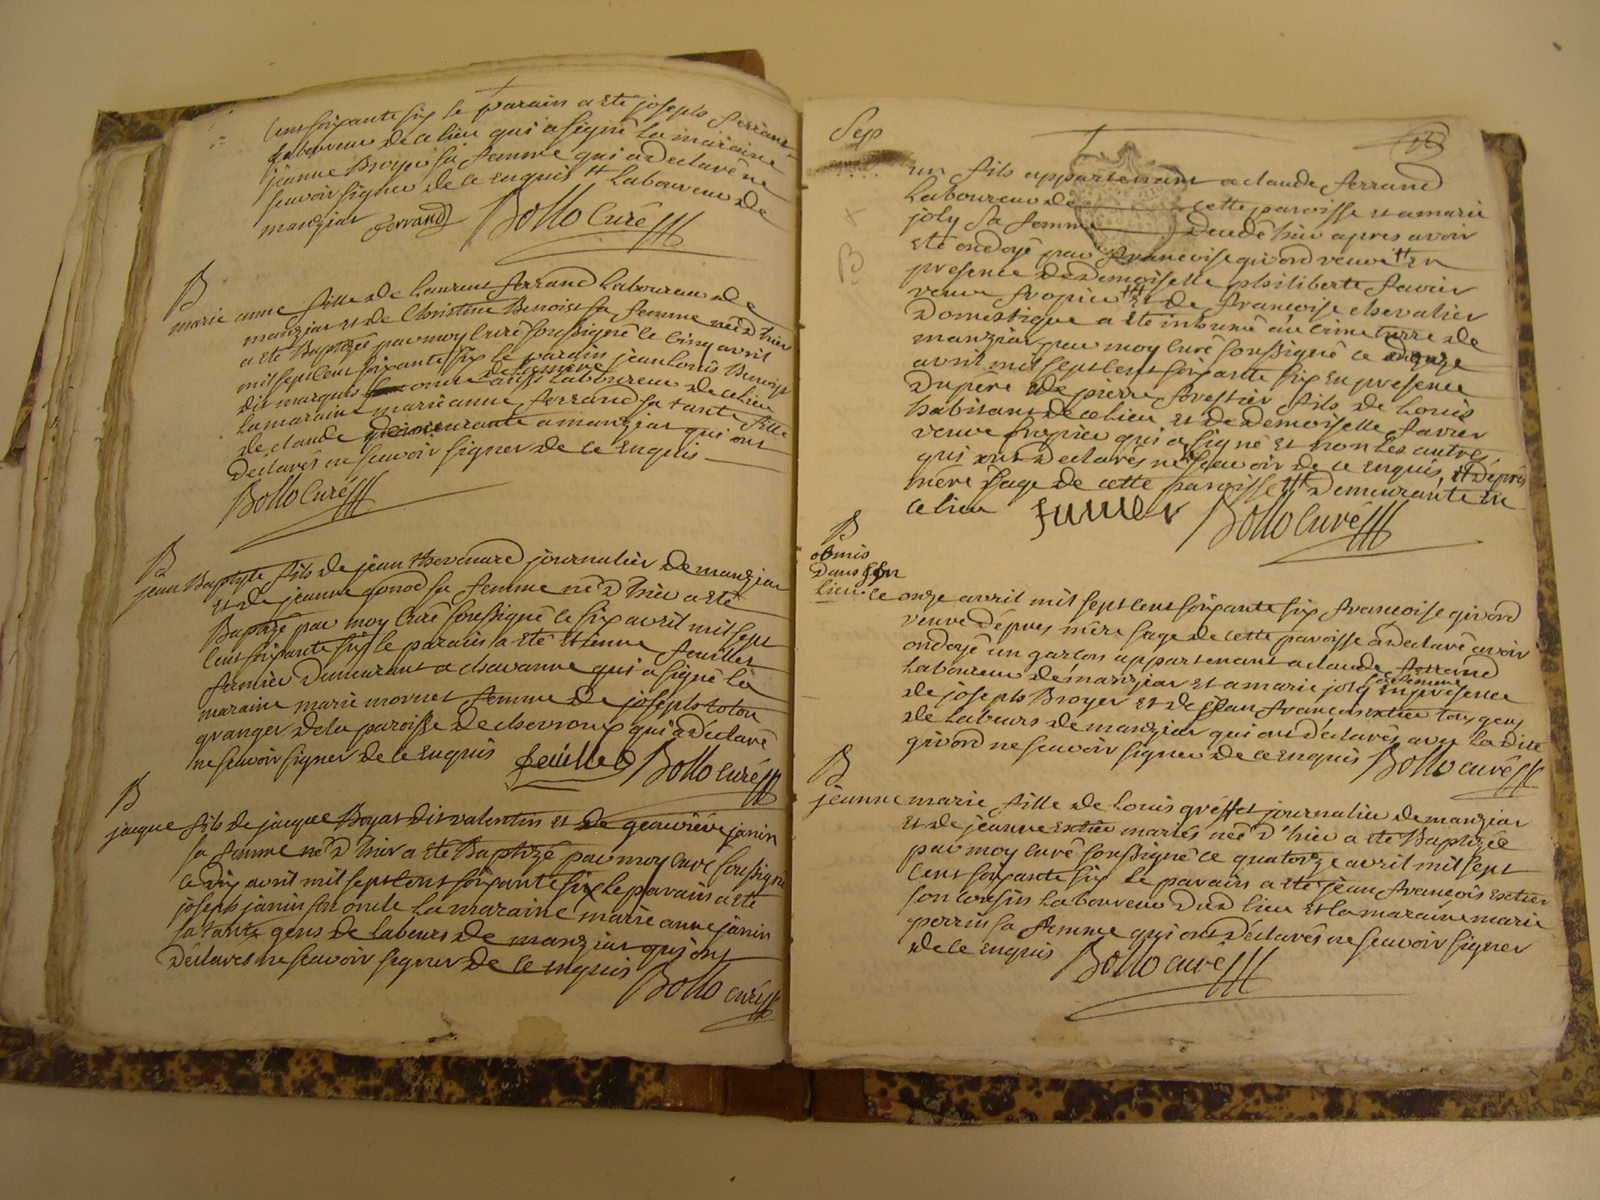 cent soixante six le parain a ete joseph ferrand
laboureur de ce lieu qui a signé la maraine
jeanne Broyer sa femme qui a declaré ne
scavoir signer de ce enquis # laboureur de
manziat ferrand Bollo Curé
B
marie anne fille de laurent ferrand laboureur de
manziat et de Christine Benoist sa femme née d'hier
a ete Baptizée par moy curé soussigné le cinq avril
mil sept cent soixante six le parain jean louis Benoist
dit marquis oncle aussi laboureur de ce lieu
la maraine marie anne ferrand sa tante fille
de claude demeurante a manziat qui ont
declarés ne scavoir signer de ce enquis
Bollo Curé
B
jean Baptiste fils de jean thevenard journalier de manziat
et de jeanne gonod sa femme né d'hier a ete
Baptizé par moy curé soussigné le six avril mil sept
cent soixante six le parain a ete etienne feuillet
fermier demeurant a chavanne qui a signé la
maraine marie mornet femme de joseph
granger de la paroisse de chevroux qui a déclaré
ne scavoir signer de ce enquis feuillet Bollo curé
B
jacque fils de jacque Boyat dit valentin et de geneviève janin
sa femme né d'hier a ete Baptizé par moy curé soussigné
le dix avril mil sept cent soixante six le parain a ete
joseph janin son oncle la maraine marie anne janin
sa tante gens de labeurs de manziat qui ont
déclarés ne scavoir signer de ce enquis
Bollo curé
Sep
un fils appartenant a claude ferrand
laboureur de cette paroisse et a marie
joly sa femme decedé hier apres avoir
ete ondoyé par francoise givord veuve # en
presence de demoiselle philiberte favier
veuve fropier et de francoise chevalier
domestique a ete inhumé au cimetierre de
manziat par moy curé soussigné ce douze
avril mil sept cent soixante six en presence
du pere de pierre forestier fils de louis
habitant de ce lieu et de demoiselle favier
veuve fropier qui a signé et non les autres
qui ont declarés ne scavoir de ce enquis, # Déprés
mère sage de cette paroisse # demeurante en
ce lieu favier Bollo curé
B
obmis
dans son
lieu. le onze avril mil sept cent soixante six francoise givord
veuve déprés mère sage de cette paroisse a declaré avoir
ondoyé un garcon appartenant a claude ferrand
laboureur de manziat et a marie joly sa femme en présence
de joseph Broyer et de jean francois extier tous gens
de labeurs de manziat qui ont déclarés avec la dite
givord ne scavoir signer de ce enquis Bollo curé
B
jeanne marie fille de louis gréffet journalier de manziat
et de jeanne extier mariés née d'hier a ete Baptizée
par moy curé soussigné ce quatorze avril mil sept
cent soixante six le parain a ete jean francois extier
son cousin laboureur dud lieu et la maraine marie
perrin sa femme qui ont déclarés ne scavoir signer
de ce enquis Bollo curé